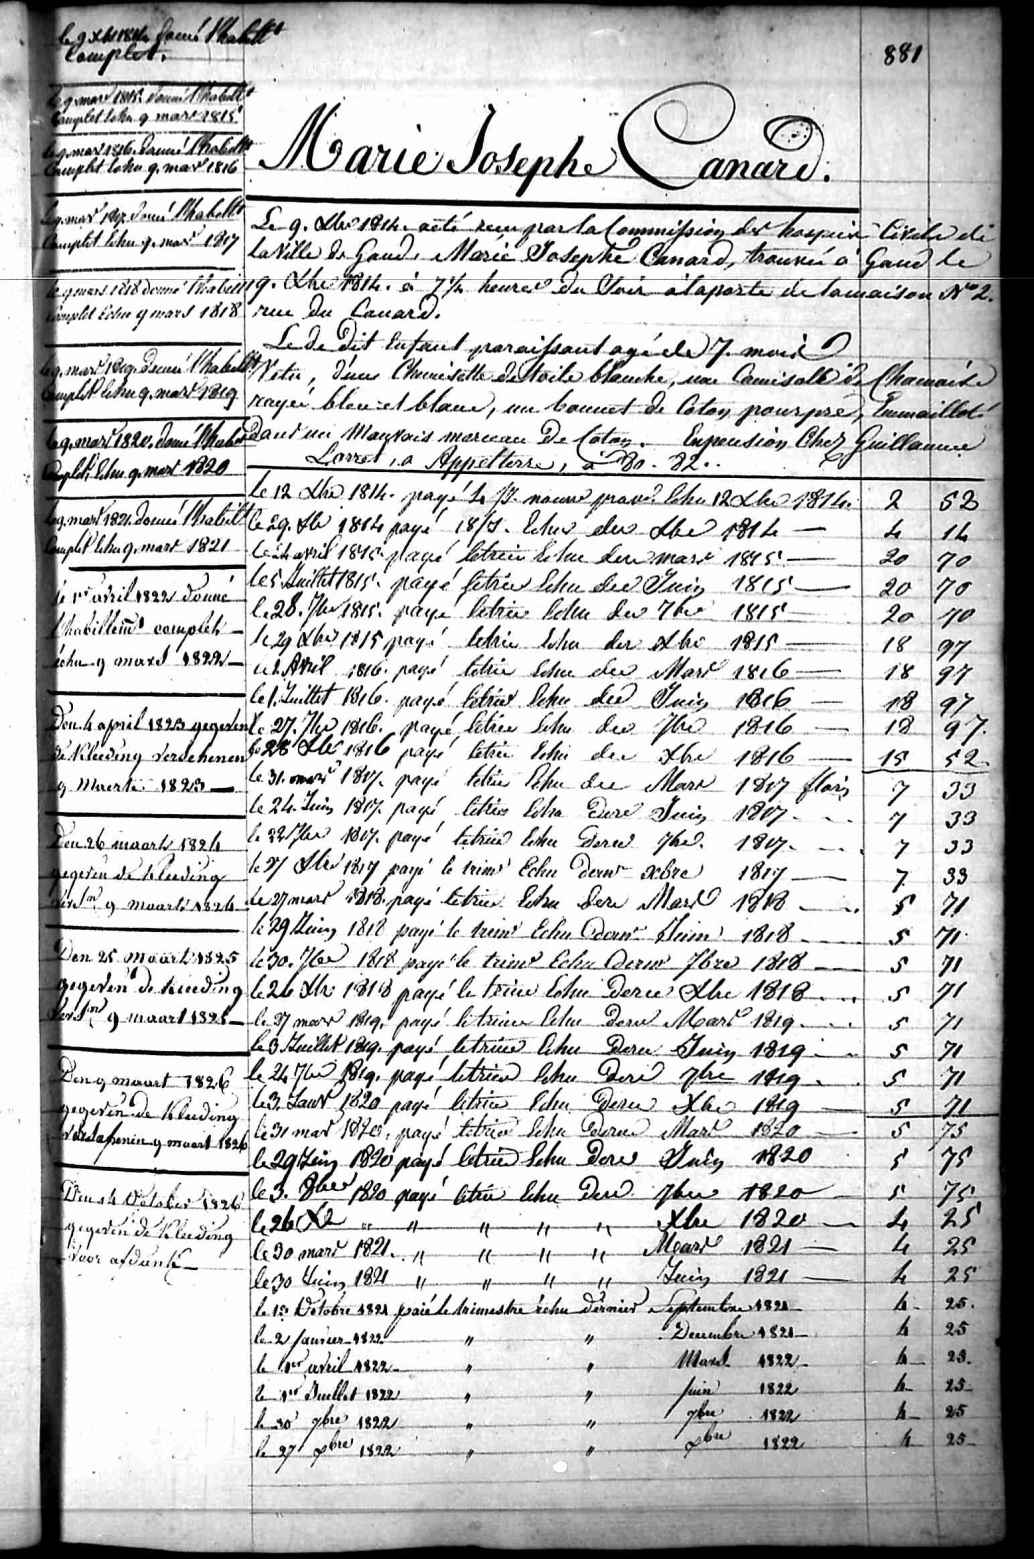 881
le 9 Xbre 1814 donné l'habillt
Complet.
le 9 mars 1815. donné l'habillt
Complet Echu 9 mars 1815
le 9 mars 1816. donné l'habillt
Complet Echu 9. mars 1816
le 9. mars 1817. donné l'habillt
Complet Echu 9. mars 1817
le 9 mars 1818 donné l'habillt
Complet Echu 9 mars 1818
le 9. mars 1819. donné l'habillt
Complet Echu 9. mars 1819
le 9. mars 1820. donné l'habillt
Complet Echu 9. mars 1820
le 9. mars 1821 donné l'habillt
Complet Echu 9. mars 1821
le 1er avril 1822 donné
l'habillemt complet
échu 9 mars 1822
Den 4 april 1823 gegeven
de Kleeding verschenen
9 Maerte 1823
Den 26 maart 1824
gegeven de Kleeding
9 maarte 1824
Den 25 maart 1825
gegeven de Kleeding
9 maart 1825
Den 9 maart 1826
gegeven de Kleeding
9 maart 1826
Den 4 October 1826
gegeven de Kleeding
voor
Marie Josephe Canard.
Le 9. Xbre 1814. a été reçu par la Commission des hospices Civils de
la Ville de Gand, Marie Josephe Canard, trouvée à Gand le
9. Xbre 1814. à 7 1/4 heures du Soir à la porte de la maison No 2.
rue du Canard.
Le dit Enfant paraissant agé de 7. mois
Vetu, d'une Chemisette de toile blanche, une Camisolle de
rayée bleu et blanc, un bonnet de Coton pourpre, Emmailloté
dans un Mauvais morceau De Coton. En pension Chez Guillaume
a Appelterre, à 80. 82..
le 12 Xbre 1814. payé Echu 12 Xbre 1814. 2 52
le 29. Xbr 1814 payé 18/J. Echu der Xbre 1814 4 14
le 4 avril 1815. payé letrim Echu der mars 1815 20 70
le 5 Juillet 1815. payé letrim Echu der Juin 1815 20 70
le 28. 7br 1815. payé letrim Echu der 7bre 1815 20 70
le 29 Xbre 1815 payé letrim Echu der Xbre 1815 18 97
le 4 Avril 1816. payé letrim Echu der Mars 1816 18 97
le 1. Juillet 1816. payé letrim Echu der Juin 1816 18 97
le 27. 7br 1816. payé letrim Echu der 7bre 1816 18 97.
le 28 Xbr 1816 payé letrim Echu der Xbre 1816 15 52
le 31. mars 1817. payé letrim Echu der Mars 1817 florins 7 33
le 24 Juin 1817. payé letrim Echu Dere Juin 1817. 7 33
le 22 7br 1817. payé letrim Echu Derre 7bre. 1817. 7 33
le 27 Xbre 1817 payé le trimr Echu dernr xbre 1817 7 33
le 27 mars 1818. payé letrim Echu Dere Mars 1818 5 71
le 29 Juin 1818 payé le trimr Echu dernr Juin 1818 5 71
le 30. 7br 1818 payé le trimr Echu Dernr 7bre 1818 5 71
le 26 Xbr 1818 payé le trim Echu Dere Xbre 1818 5 71
le 27 mars 1819. payé letrim Echu Dern Mars 1819. 5 71
le 3 Juillet 1819. payé letrim Echu Dern Juin 1819 5 71
le 24 7br 1819. payé letrim Echu Deré 7bre 1819. 5 71
le 3. Janv 1820 payé letrim Echu Dere Xbre 1819 5 71
le 31 mars 1820. payé letrim Echu Dern Mars 1820 5 75
le 29 Juin 1820 payé letrim Echu Dere Juin 1820 5 75
le 3. 8bre 1820 payé letrim Echu Dere 7bre 1820 5 75
le 26 Xb " " " " " Xbre 1820 4 25
le 30 mars 1821. " " " " Mars 1821 4 25
le 30 Juin 1821 " " " " Juin 1821 4 25
le 1er Octobre 1821 paié le trimestre échu dernier Septembre 1821 4 25.
le 2 janvier 1822 " " Decembre 1821 4 25
le 1er avril 1822 " " Mars 1822 4 25.
le 1er Juillet 1822 " " juin 1822 4 25
le 30 7bre 1822 " " 7bre 1822 4 25
le 27 xbre 1822 " " xbre 1822 4 25